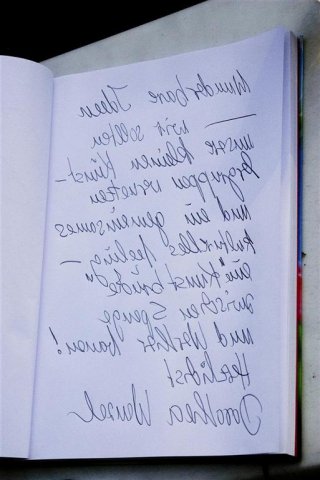 Wunderbare Ideen
— wir sollten
unsere kleinen Künst-
lergruppen vernetzen
und ein gemeinsames
kulturelles feeling –
eine "Kunstbrücke"
zwischen Spenge
und Werther bauen!
Herzlichst
Dorothea Wenzel